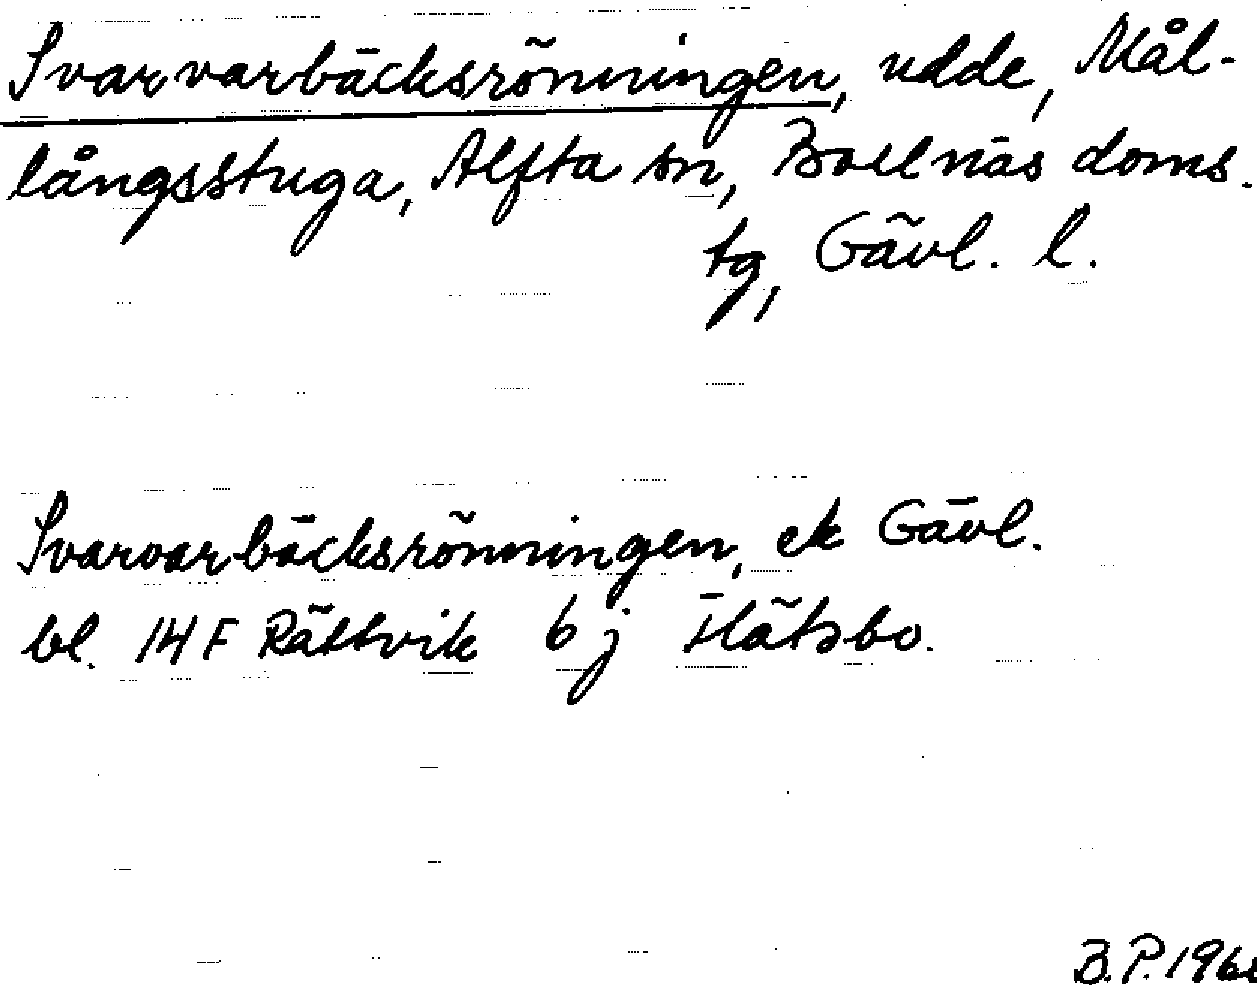 Svarvarbäcksrönningen, udde, Mål-
långsstuga, Alfta sn, Bollnäs doms.
tg, Gävl. l.
Svarvarbäcksrönningen, ek Gävl.
bl. 14 F Rättvik 6 j Flätsbo.
B.P.